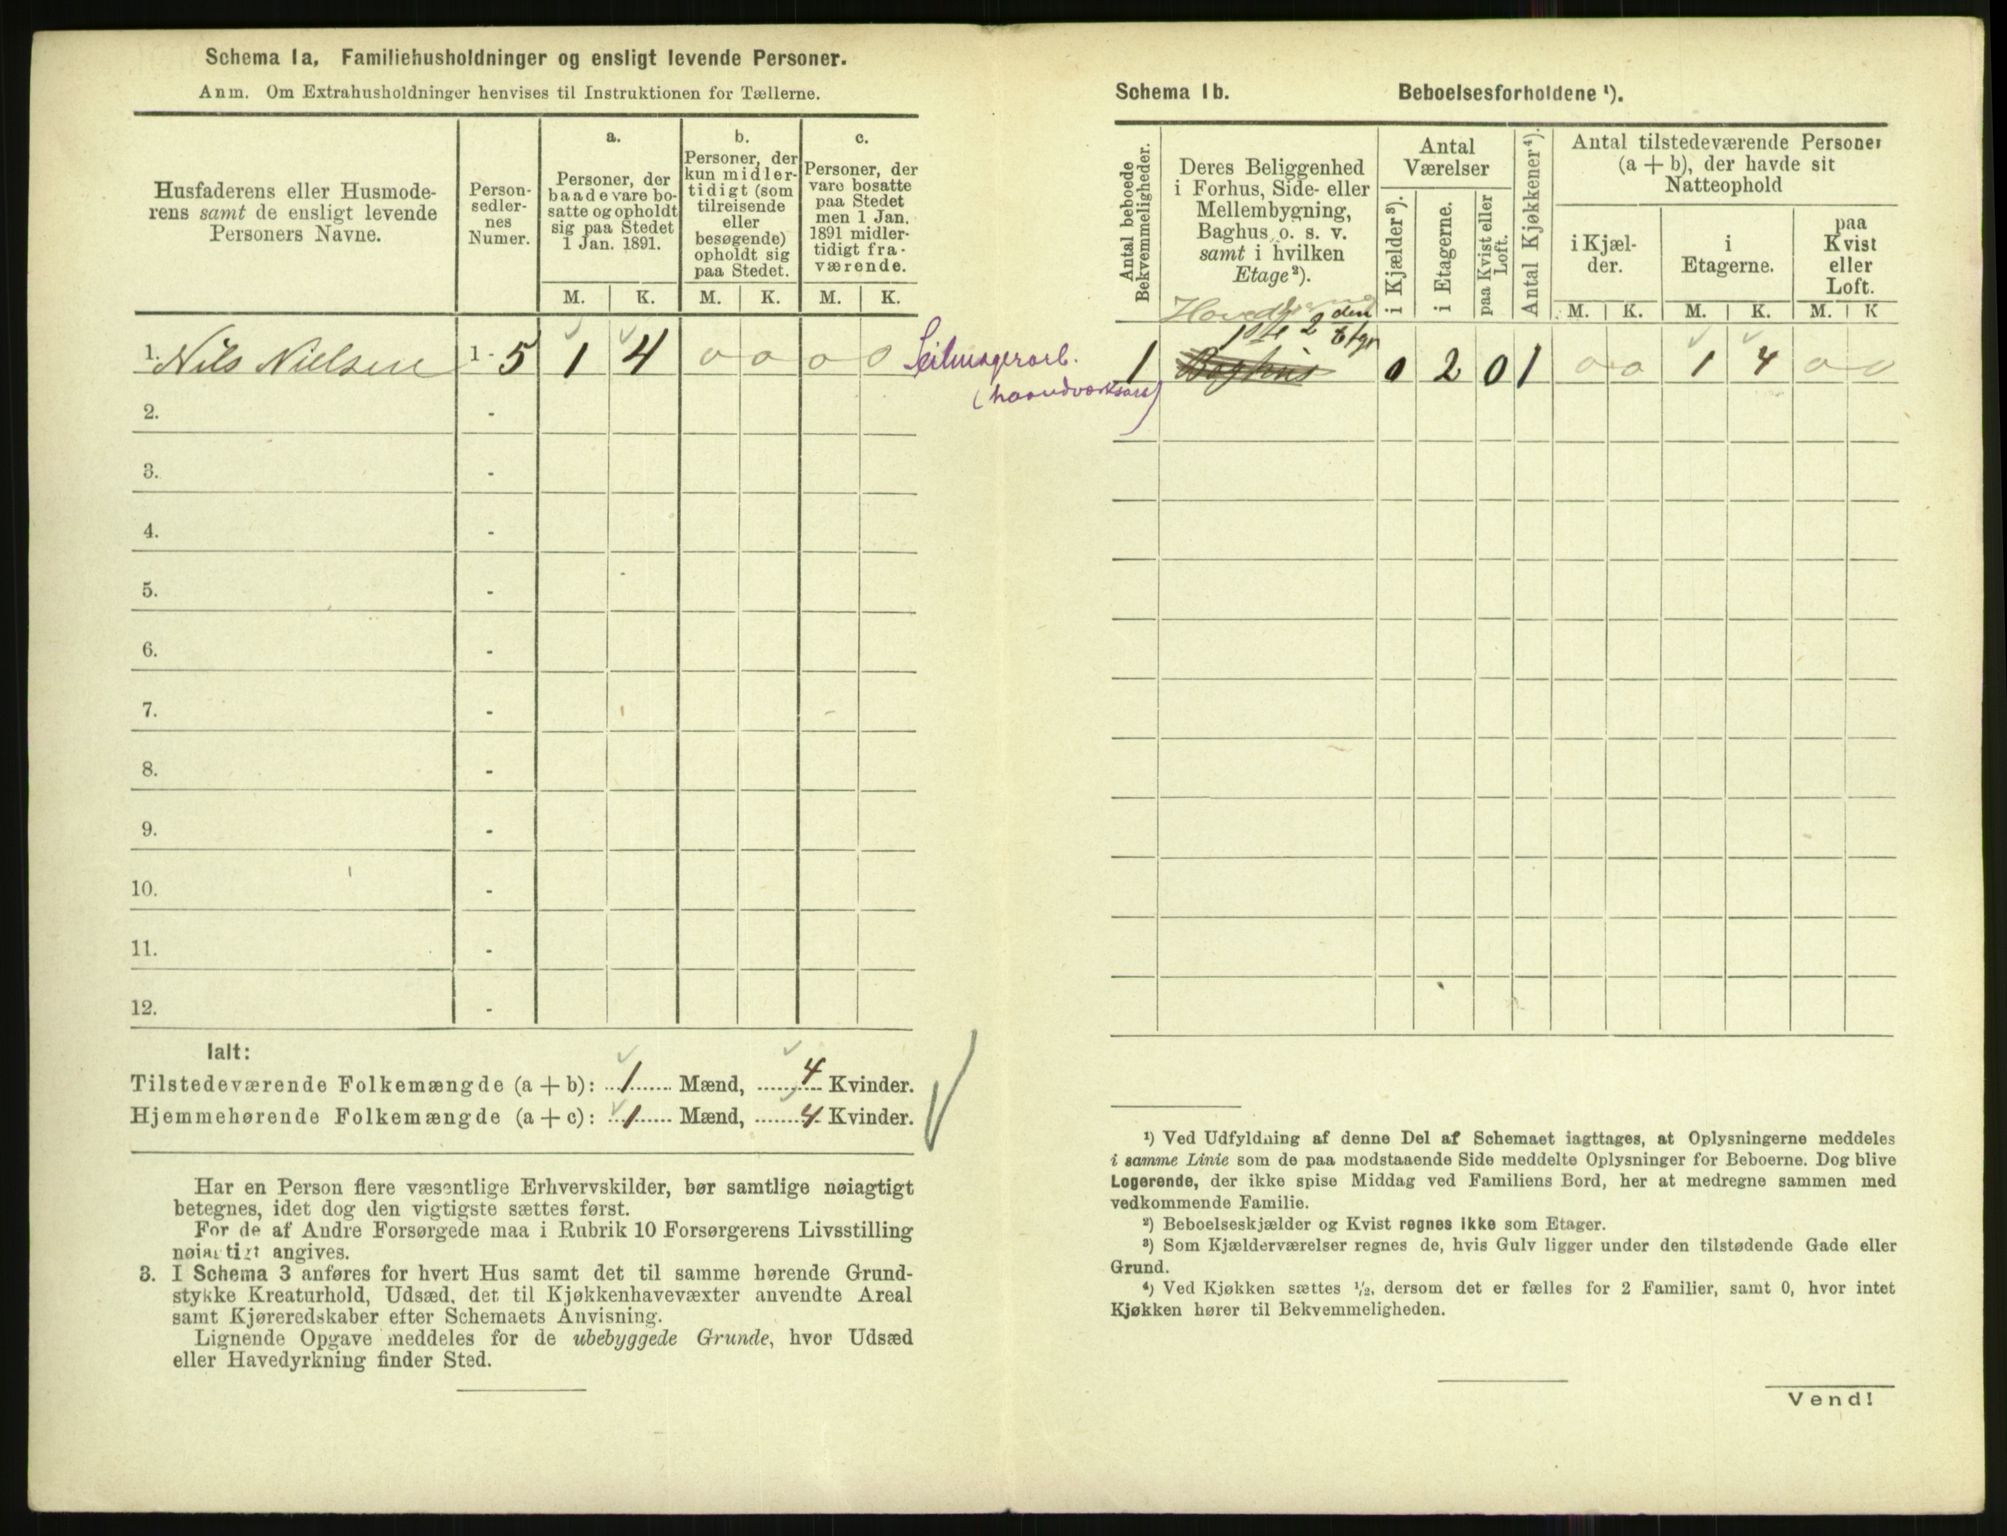 Schema 1a, Familiehusholdninger og ensligt levende Personer.
Anm. Om Extrahusholdninger henvises til Instruktionen for Tællerne.
Husfaderens eller Husmode-
rens samt de ensligt levende
Personers Navne.
Person-
sedler-
nes
Numer.
a.
Personer, der
baade vare bo-
satte og opholdt
sig paa Stedet
1 Jan. 1891.
b.
Personer, der
kun midler-
tidigt (som
tilreisende
eller
besøgende)
opholdt sig
paa Stedet.
c.
Personer, der
vare bosatte
paa Stedet
men 1 Jan.
1891 midler-
tidigt fra-
værende.
M. K. M. K. M. K.
1. Nils Nielsen 1 - 5 1 4 0 0 0 0 Seilmagerarb.
(haandværksarb)
2. -
3. -
4. -
5. -
6. -
7. -
8. -
9. -
10. -
11. -
12. -
Ialt:
Tilstedeværende Folkemængde (a + b): 1 Mænd, 4 Kvinder.
Hjemmehørende Folkemængde (a + c): 1 Mænd, 4 Kvinder.
Har en Person flere væsentlige Erhvervskilder, bør samtlige nøiagtigt
betegnes, idet dog den vigtigste sættes først.
For de af Andre Forsørgede maa i Rubrik 10 Forsørgerens Livsstilling
nøiagtigt angives.
3. I Schema 3 anføres for hvert Hus samt det til samme hørende Grund-
stykke Kreaturhold, Udsæd, det til Kjøkkenhavevæxter anvendte Areal
samt Kjøreredskaber efter Schemaets Anvisning.
Lignende Opgave meddeles for de ubebyggede Grunde, hvor Udsæd
eller Havedyrkning finder Sted.
Schema 1b. Beboelsesforholdene ¹).
Antal beboede
Bekvemmeligheder.
Deres Beliggenhed
i Forhus, Side- eller
Mellembygning,
Baghus o. s. v.
samt i hvilken
Etage²).
Antal
Værelser
i Kjælder³).
i Etagerne.
paa Kvist eller
Loft.
Antal Kjøkkener⁴).
Antal tilstedeværende Personer
(a + b), der havde sit
Natteophold
i Kjæl-
der.
i
Etagerne.
paa
Kvist
eller
Loft.
M. K. M. K. M. K
1ste 2den
Etgr
1 Baghus 0 2 0 1 0 0 1 4 0 0
¹) Ved Udfyldning af denne Del af Schemaet iagttages, at Oplysningerne meddeles
i samme Linie som de paa modstaaende Side meddelte Oplysninger for Beboerne. Dog blive
Logerende, der ikke spise Middag ved Familiens Bord, her at medregne sammen med
vedkommende Familie.
²) Beboelseskjælder og Kvist regnes ikke som Etager.
³) Som Kjælderværelser regnes de, hvis Gulv ligger under den tilstødende Gade eller
Grund.
⁴) Ved Kjøkken sættes ¹/₂, dersom det er fælles for 2 Familier, samt 0, hvor intet
Kjøkken hører til Bekvemmeligheden.
Vend!